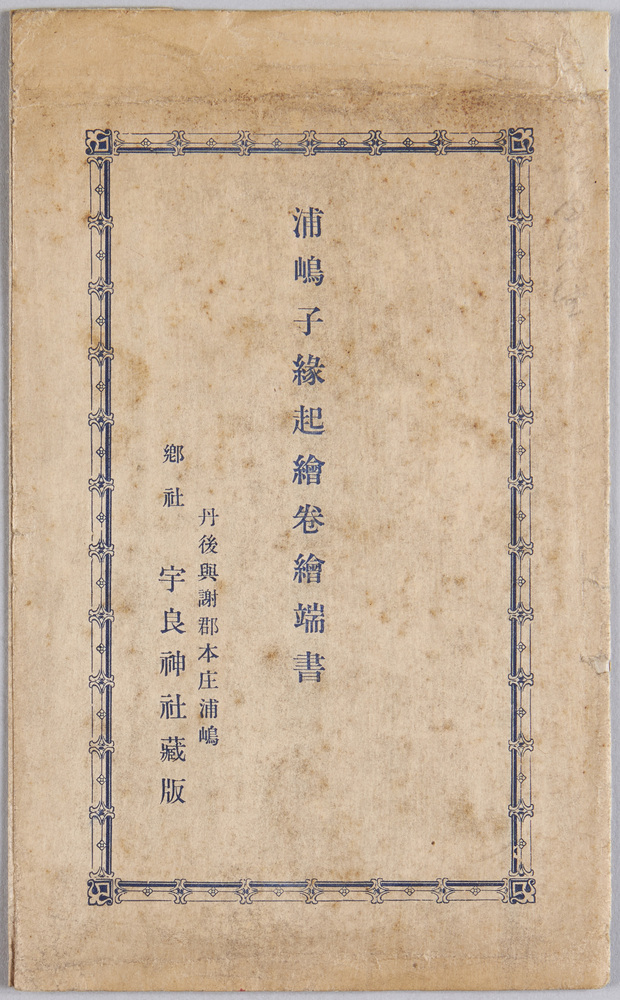 浦嶋子緣起繪卷繪端書
丹後與謝郡本庄浦嶋
鄕社 宇良神社藏版